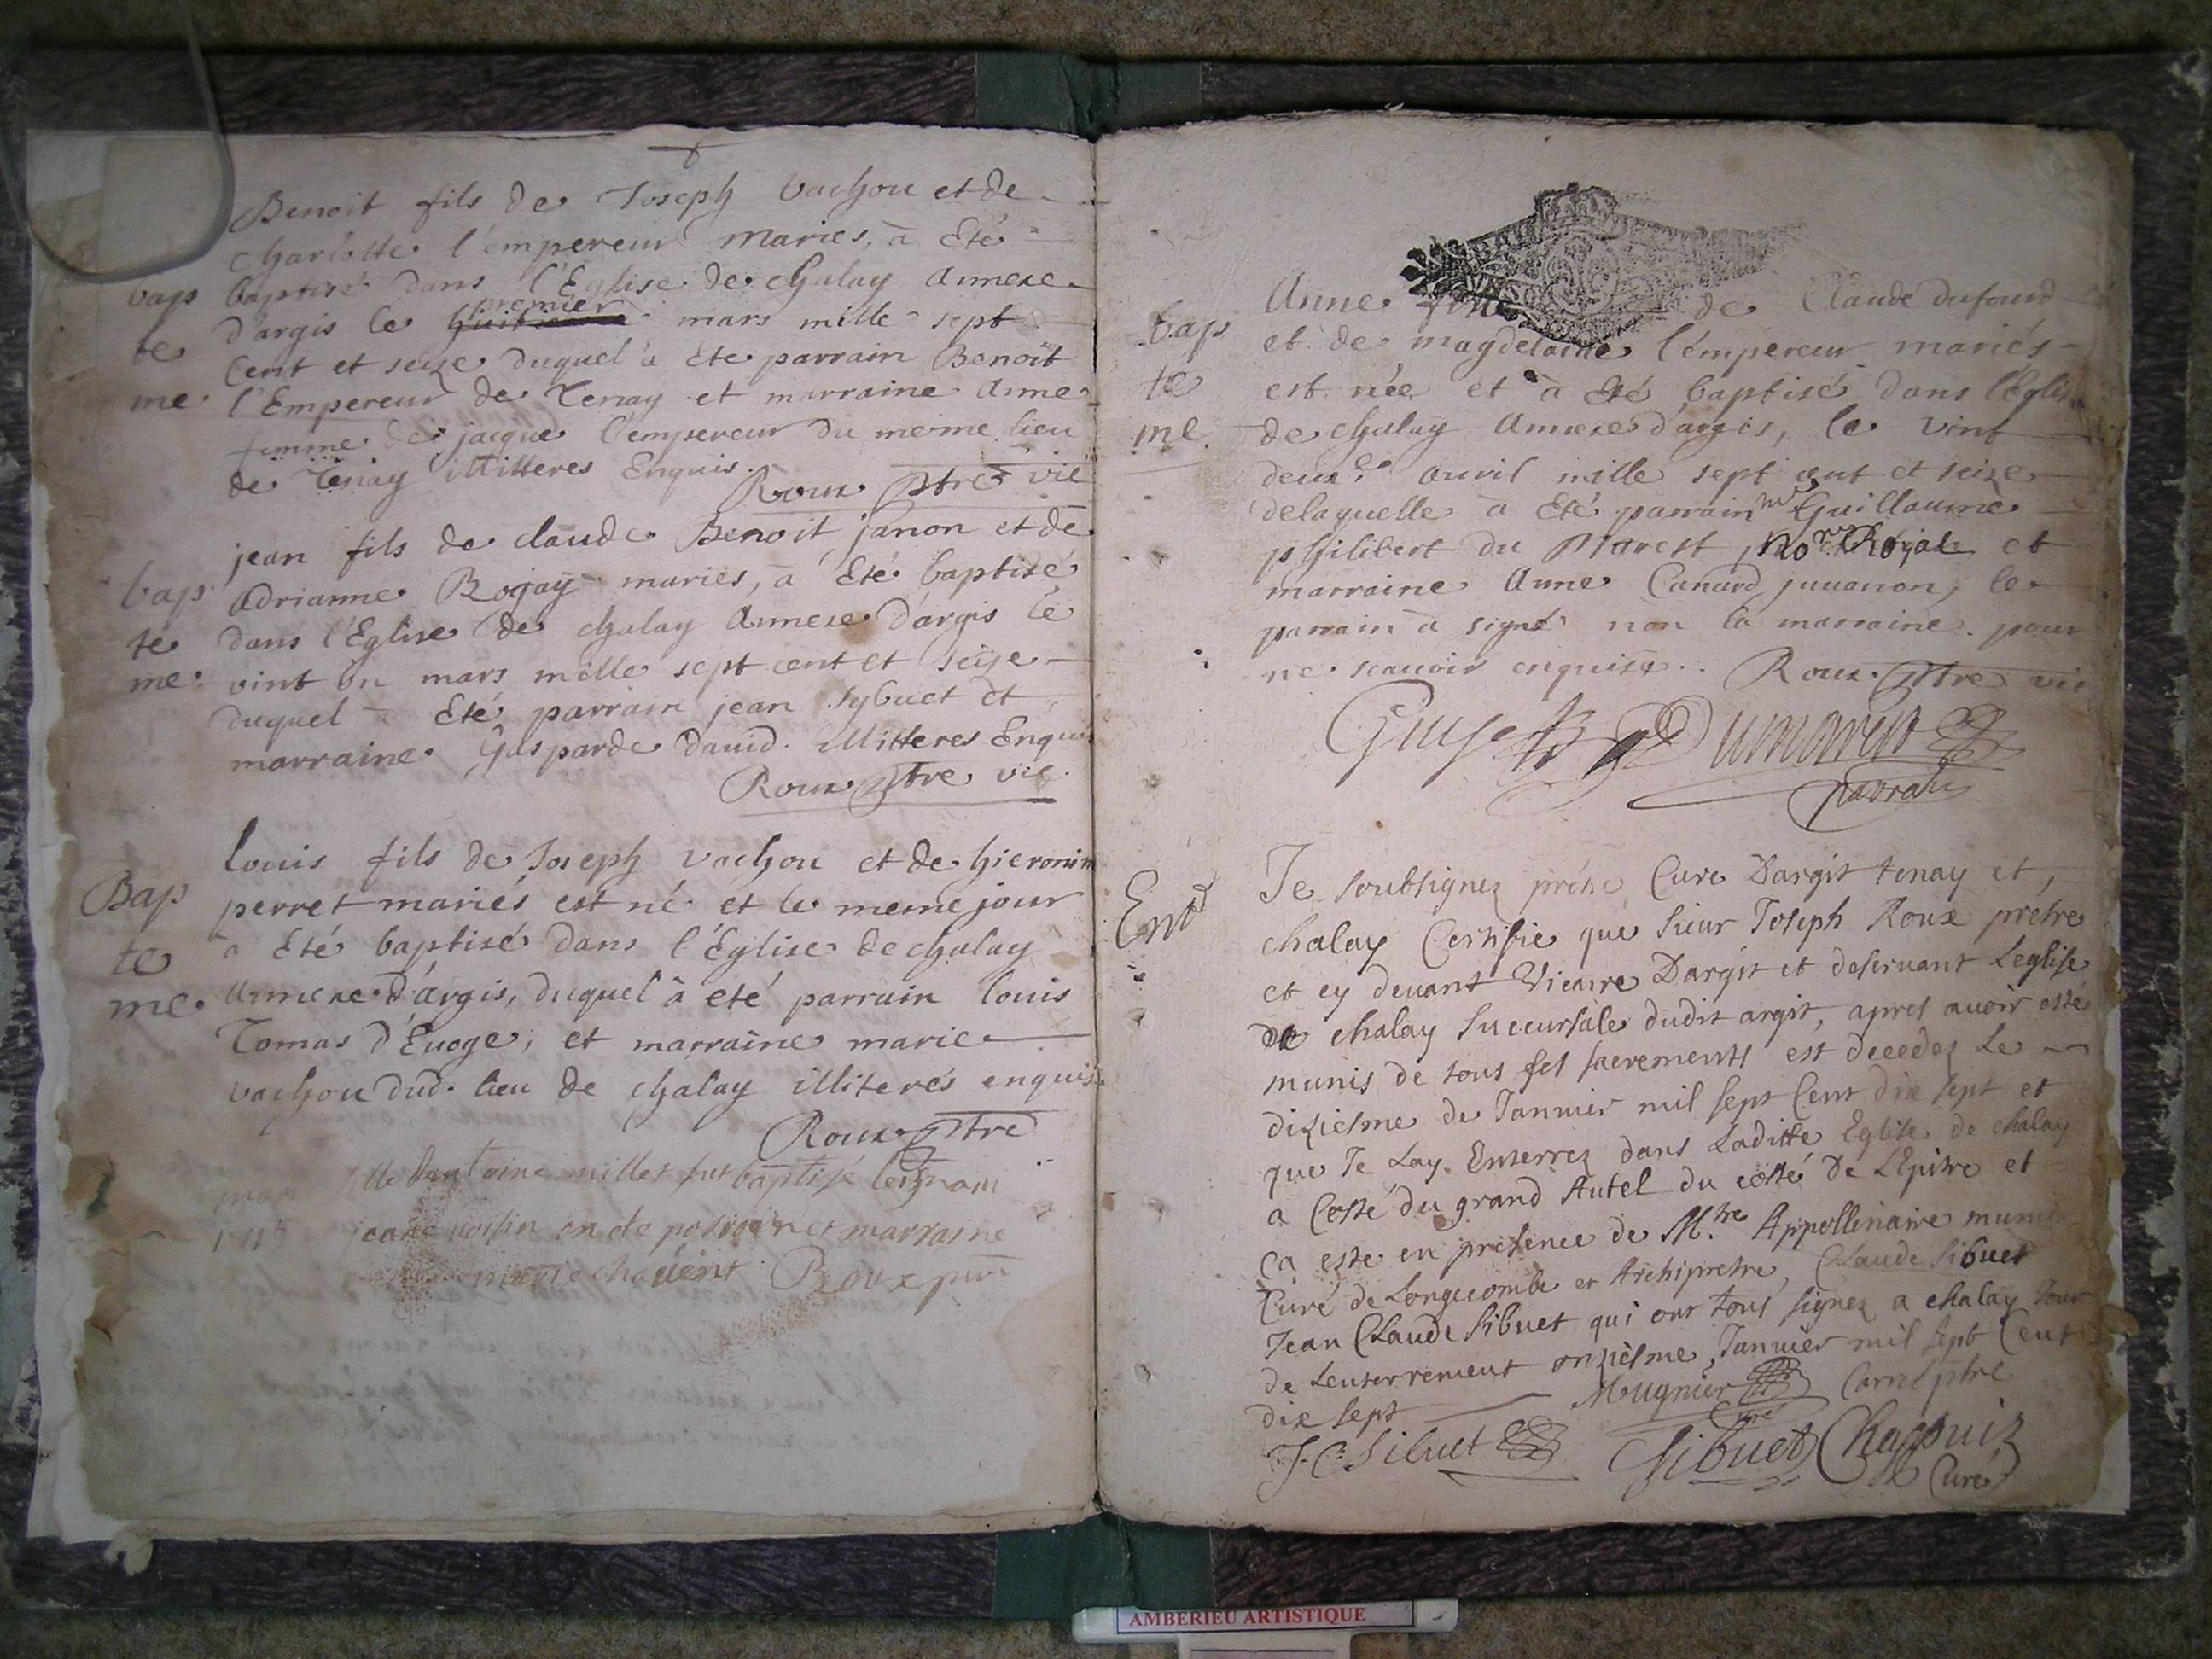 Benoit fils de Joseph vachou et de
charlotte l'empereur mariés, à Eté
bap baptisé dans l'Eglise de chalay Annexe
premier
te d'argis le huitieme mars mille sept
Cent et seize duquel à Eté parrain Benoît
me l'Empereur de Tenay et marraine Anne
femme de jacque l'empereur du meme lieu
de Tenay illitteres Enquis.
Roux ptre vic
jean fils de claude Benoit janon et de
bap Adrianne Rojay mariés, à Eté baptisé
te dans l'Eglise de chalay Annexe d'argis le
me vint un mars mille sept cent et seize
duquel à Eté parrain jean sybuet et
marraine Gasparde david. illitteres Enquis
Roux ptre vic.
Louis fils de Joseph vachou et de hieronim
Bap perret mariés est né et le meme jour
te à Eté baptisé dans l'Eglise de chalay
me Annexe d'argis, duquel à eté parrain louis
Tomas d'Evoge, et marraine marie
vachou dud. lieu de chalay illiterés enquis.
Roux ptre
millet fut baptisé
et marraine
Roux
Anne fille de Claude dufourd
bap et de magdelaine l'empereur mariés
te est née et à Eté baptisé dans l'Eglise
me de chalay Annexe d'argis, le vint
deuxe avril mille sept cent et seize
delaquelle à Eté parrain mr Guillaume
philibert du Marest nore Royal et
marraine Anne Canard juuanon, le
parrain à signé non la marraine pour
ne scauoir enquise. Roux ptre vic
Dumarest
parrain
Ent Je soubsignez prétre Cure Dargit tenay et,
chalay Certifie que sieur Joseph Roux prétre
et cy deuant Vicaire Dargit et deseruant Leglise
de chalay succursale dudit argit, apres auoir esté
munis de tous ses sacrements est decedez Le
dixiesme de Januier mil sept Cent dix sept et
que Je Lay Enterrez dans Laditte Eglise de chalay
a Costé du grand Autel du costé de L'Epitre et
ca este en presence de Mtre Appollinaire munier
Curé de Longecombe et Archipretre, Claude Sibuet
Jean Claude Sibuet qui ont tous signez a chalay Jour
de Lenterrement onziesme Januier mil sept Cent
dix sept Mugnier Carrel ptre
curé
J. C. Sibuet Sibuet Chappuiz
Curé
AMBERIEU ARTISTIQUE